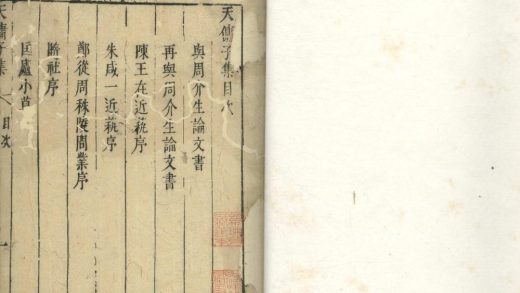 天傭子集目次
與周介生論文書
再與周介生論文書
陳王在近藝序
朱咸一近藝序
鄭從周秣陵問業序
序
匡廬小草
天傭子集
目次
一